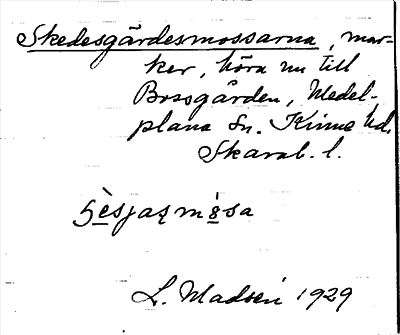 Skedesgärdesmossarna, mar-
ker, höra nu till
Bossgården, Medel-
plana sn. Kinne hd.
Skarab. l.
L. Madsén 1929